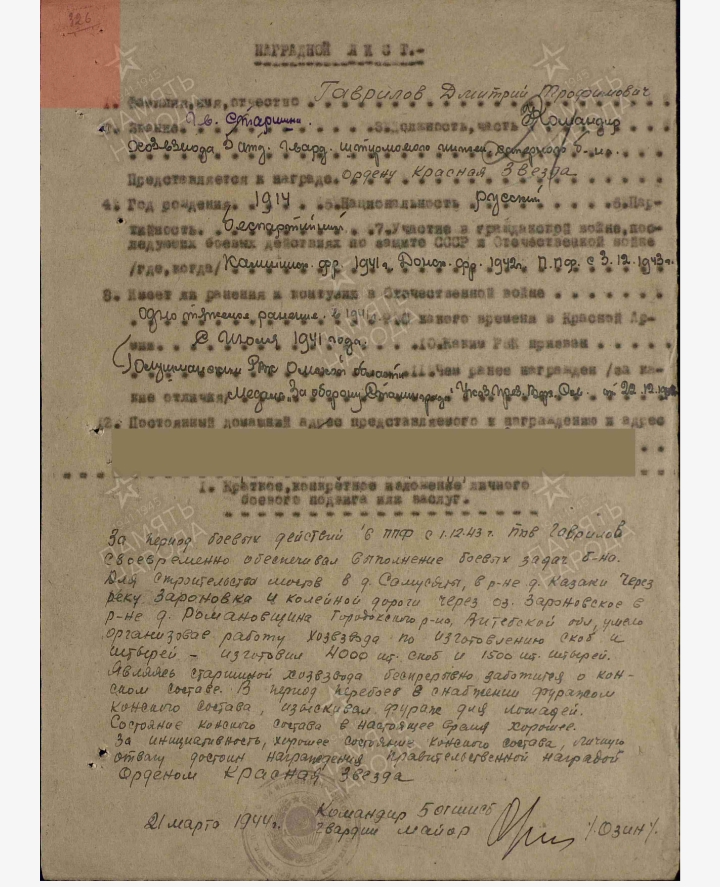 326
НАГРАДНОЙ ЛИСТ.-
1. Фамилия, имя, отчество Гаврилов Дмитрий Трофимович
2. Звание Гв. Старшина. 3. Должность, часть Командир
Хозвзвода 5 отд. гвард. штурмового инжен. саперного б-на.
Представляется к награде. ордену Красная Звезда
4. Год рождения. 1914 5. Национальность русский 6. Пар-
тийность. беспартийный 7. Участие в гражданской войне, пос-
ледующих боевых действиях по защите СССР и Отечественной войне
/где, когда/ Калинин. фр. 1941г Донск. фр. 1942г П.П.Ф. с 3.12.1943г.
8. Имеет ли ранения и контузии в Отечественной войне
одно тяжелое ранение в 1941 9. С какого времени в Красной Ар-
мии. с Июля 1941 года. 10. Каким РВК призван
РВК Омской области 11. Чем ранее награжден /за ка-
кие отличия/ Медаль "За оборону Сталинграда" Указ. През. Верх. Сов. от 22.12.
12. Постоянный домашний адрес представляемого к награждению и адрес
I. Краткое, конкретное изложение личного
боевого подвига или заслуг.
За период боевых действий в ППФ с 1.12.43 г. тов Гаврилов
своевременно обеспечивал выполнение боевых задач б-на.
Для строительства мостов в д. в р-не д. Казаки через
реку Зароновка и колейной дороги через оз. Зароновское в
р-не д. Романовщина Городокского р-на, Витебской обл, умело
организовал работу хозвзвода по изготовлению скоб и
штырей – изготовил 4000 шт. скоб и 1500 шт. штырей.
Являясь старшиной хозвзвода беспрерывно заботится о кон-
ском составе. В период перебоев в снабжении фуражом
конского состава, изыскивал фураж для лошадей.
Состояние конского состава в настоящее время хорошее.
За инициативность, хорошее состояние конского состава, личную
отвагу достоин награждения правительственной наградой
Орденом Красная Звезда
21 марта 1944г. Командир 5 огшисб
гвардии майор /Озин/.
ПАМЯТЬ НАРОДА